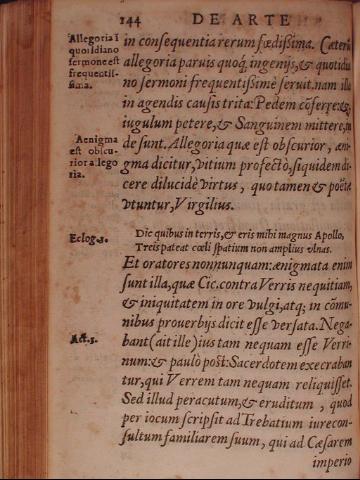 144 DE ARTE
Allegoria ī
quotidiano
sermone est
frequentis-
sima.
in consequentia rerum fœdissima. Cæterū
allegoria paruis quoq; ingenijs, & quotidia
no sermoni frequentissimè seruit. nam illa
in agendis causis trita: Pedem cōferre: &
iugulum petere, & Sanguinem mittere, in
Aenigma
est obscu-
rior allego
ria.
de sunt. Allegoria quæ est obscurior, æni-
gma dicitur, vitium profectò, siquidem di-
cere dilucidè virtus, quo tamen & poëtæ
vtuntur, Virgilius.
Eclog. 3.
Dic quibus in terris, & eris mihi magnus Apollo,
Treis pateat cœli spatium non amplius vlnas.
Et oratores nonnunquam: ænigmata enim
sunt illa, quæ Cic. contra Verris nequitiam,
& iniquitatem in ore vulgi, atq; in cōmu-
nibus prouerbijs dicit esse versata. Nega-
Act. 3.
bant (ait ille) ius tam nequam esse Verri-
num: & paulò pòst: Sacerdotem execraban
tur, qui Verrem tam nequam reliquisset.
Sed illud peracutum, & eruditum, quod
per iocum scripsit ad Trebatium iurecon-
sultum familiarem suum, qui ad Cæsarem
imperio